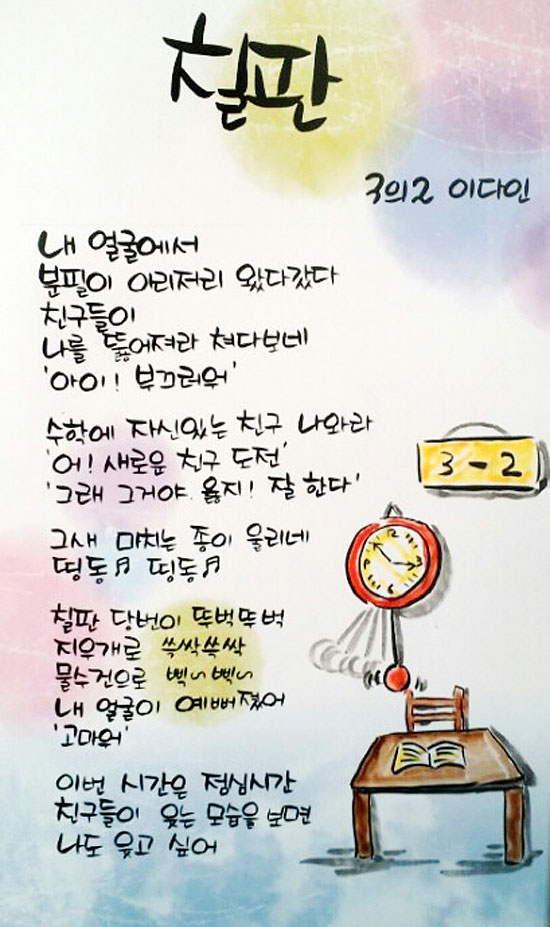 칠판
3의2 이다인
내 얼굴에서
분필이 이리저리 왔다갔다
친구들이
나를 뚫어져라 쳐다보네
'아이! 부끄러워'
수학에 자신있는 친구 나와라
'어! 새로운 친구 도전'
'그래 그거야. 옳지! 잘 한다'
그새 마치는 종이 울리네
띵동♬ 띵동♬
칠판 당번이 뚜벅뚜벅
지우개로 쓱싹쓱싹
물수건으로 삑~ 삑~
내 얼굴이 예뻐졌어
'고마워'
이번 시간은 점심시간
친구들이 웃는 모습을 보면
나도 웃고 싶어
3-2
12
3
6